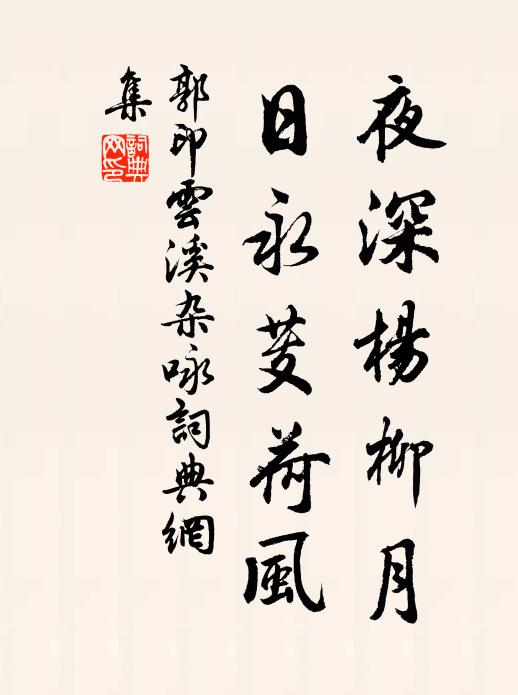 夜深楊柳月
日永芰荷風
郭印雲溪杂咏詞典網
集
詞典網印